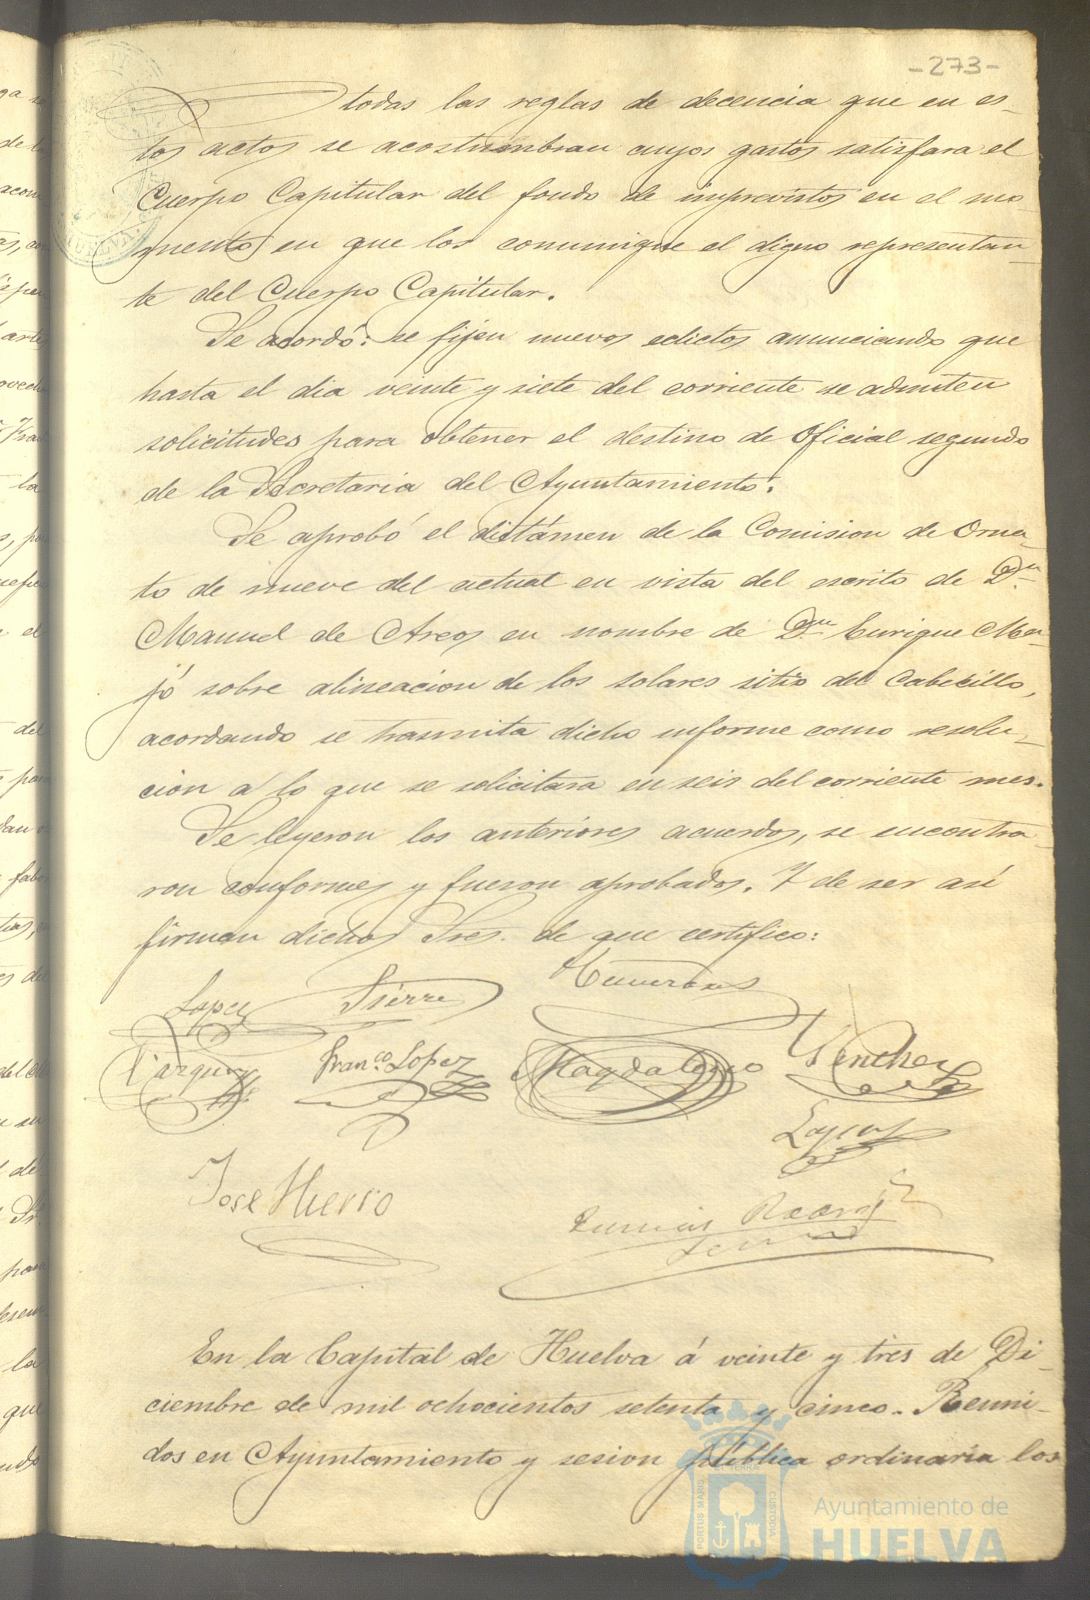 -273-
todas las reglas de decencia que en es-
tos actos se acostumbran cuyos gastos satisfara el
Cuerpo Capitular del fondo de imprevistos en el mo-
mento en que los comunique el digno representan-
te del Cuerpo Capitular.
Se acordó: se fijen nuevos edictos anunciando que
hasta el dia veinte y siete del corriente se admiten
solicitudes para obtener el destino de Oficial segundo
de la Secretaria del Ayuntamiento.
Se aprobó el dictámen de la Comision de Orna-
to de nueve del actual en vista del escrito de Dn
Manuel de Arcos en nombre de Dn Enrique Mon-
jó sobre alineacion de los solares sitio del Cabecillo,
acordando se trasmita dicho informe como resolu-
cion á lo que se solicitara en seis del corriente mes.
Se leyeron los anteriores acuerdos, se encontra-
ron conformes y fueron aprobados. Y de ser así
firman dichos Sres. de que certifico:
Lopez Sierra
Vazquez Franco. Lopez Magdaleno Sanchez
Jose Hierro
En la Capital de Huelva á veinte y tres de Di-
ciembre de mil ochocientos setenta y cinco. Reuni-
dos en Ayuntamiento y sesion pública ordinaria los
PORTUS MARIS CUSTODIA
Ayuntamiento de
HUELVA